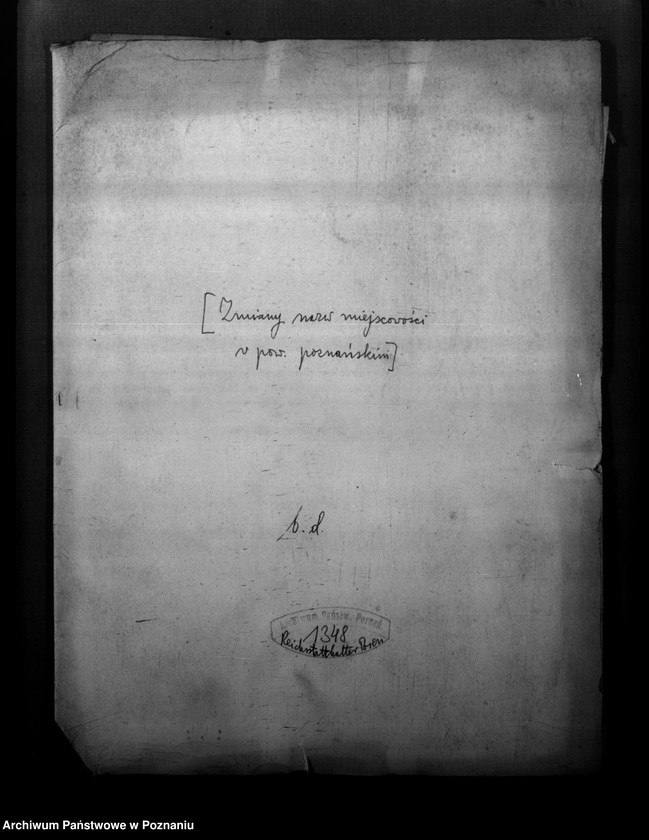 [Zmiany nazw miejscowości
w pow. poznańskim]
b. d.
Archiwum Państw. Poznań
1348
Reichsstatthalter Posen
Archiwum Państwowe w Poznaniu